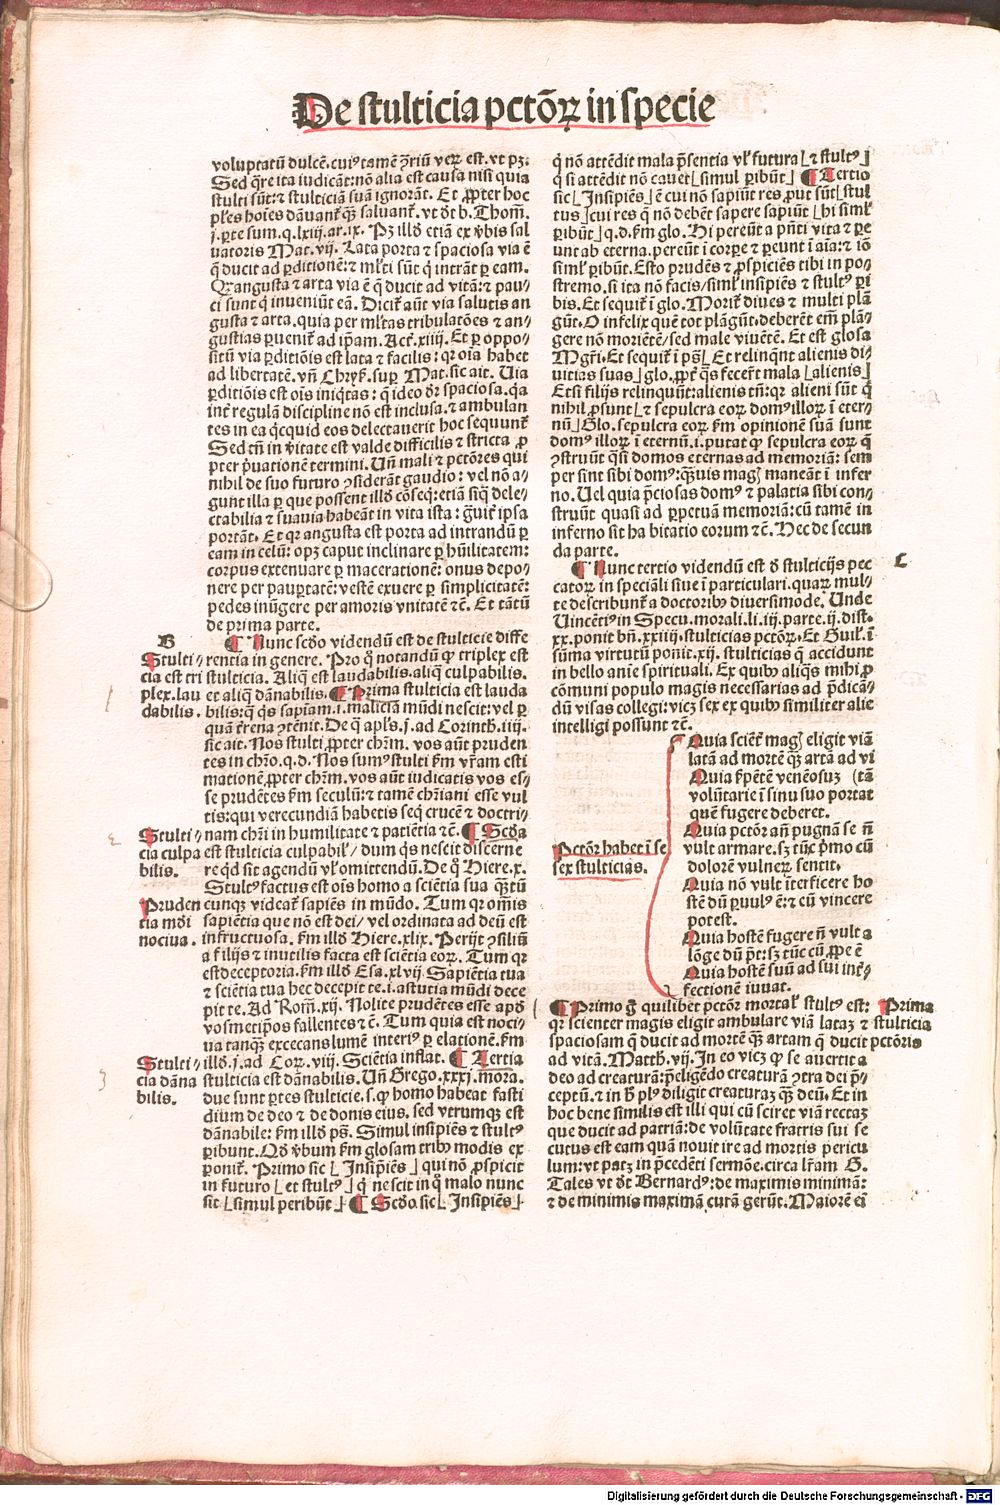 De stulticia pctõꝝ in specie
voluptatũ dulcẽ.cuiꝰtamẽ ɔ̃riũ veꝝ est.vt pꝫ.
Sed q̃re ita iudicãt:nõ alia est causa nisi quia
stulti sũt:⁊ stulticiã suã ignorãt. Et ꝓpter hoc
pl̃es hoĩes dãuant᷑ q̃ꝫ saluant᷑.vt dt̃ b. Thom̃.
j.ꝑte sum.q.lxiii.ar.ix. Pꝫ illd̃ etiã ex v̾bis sal
uatoris Mat.vij. Lata porta ⁊ spaciosa via ẽ
q̃ ducit ad ꝑditionẽ:⁊ ml̃ti sũt q̃ intrãt ꝑ eam.
Qꝛ angusta ⁊ arta via ẽ q̃ ducit ad vitã:⁊ pau/
ci sunt q̃ inueniũt eã. Dicit᷑ aũt via salutis an
gusta ⁊ arta.quia per ml̃tas tribulatões ⁊ an/
gustias ꝑuenit᷑ ad ip̃am. Act̃.xiiii. Et ꝑ oppo/
sitũ via ꝑditiõis est lata ⁊ facilis: qꝛ oĩa habet
ad libertatẽ.vñ Chrys̃.suꝑ Mat.sic ait. Uia
ꝑditiõis est oĩs iniq̃tas: q̃ ideo dr̃ spaciosa.q̃a
int̾ regulã discipline nõ est inclusa.⁊ ambulan
tes in ea q̃cquid eos delectauerit hoc sequunt᷑
Sed tñ in v̾itate est valde difficilis ⁊ stricta ꝓ
pter p̃uationẽ termini. Uñ mali ⁊ pctõres qui
nihil de suo futuro ɔsiderãt gaudio: vel nõ a/
gunt illa ꝑ que possent illd̃ cõseq̃:etiã siq̃ dele/
ctabilia ⁊ suauia habeãt in vita ista: g̃uit᷑ ipsa
portãt. Et qꝛ angusta est porta ad intrandũ ꝑ
eam in celũ: opꝫ caput inclinare ꝑ hũilitatem:
corpus extenuare ꝑ macerationẽ: onus depo/
nere per pauꝑtatẽ: vestẽ exuere ꝑ simplicitatẽ:
pedes inũgere per amoris vnitatẽ ⁊c̃. Et tãtũ
de prima parte.
B
¶ Nunc scd̃o videndũ est de stulticie diffe
rentia in genere. Pro q̃ notandũ ꝙ triplex est
stulticia. Aliq̃ est laudabilis.aliq̃ culpabilis.
et aliq̃ dãnabilis. ¶ Prima stulticia est lauda
bilis:q̃ q̃s sapiam.i.maliciã mũdi nescit: vel ꝑ
quã t̾rena ɔtẽnit. De q̃ apl̃s.j.ad Corinth.iiij.
sic ait. Nos stulti ꝓpter chr̃m. vos aũt pruden
tes in chr̃o.q.d. Nos sumꝰstulti ẜm vr̃am esti
mationẽ ꝓpter chr̃m.vos aũt iudicatis vos es/
se prudẽtes ẜm seculũ:⁊ tamẽ chr̃iani esse vul
tis:qui verecundiã habetis seq̃ crucẽ ⁊ doctri/
nam chr̃i in humilitate ⁊ patiẽtia ⁊c̃. ¶ Scd̃a
est stulticia culpabil᷑/ dum q̃s nescit discerne
re qd̃ sit agendũ vl᷑ omittendũ. De q̃ Hiere.x.
Stultꝰ factus est oĩs homo a sciẽtia sua q̃ꝫtũ
cunqꝫ videat᷑ sapiẽs in mũdo. Tum qꝛ om̃is
sapiẽtia que nõ est dei/ vel ordinata ad deũ est
infructuosa. ẜm illd̃ Hiere.xlix. Perijt ɔsiliũ
a filijs ⁊ inutilis facta est sciẽtia eoꝝ. Tum qꝛ
est deceptoria.ẜm illd̃ Esa.xlvij. Sapiẽtia tua
⁊ sciẽtia tua hec decepit te.i.astutia mũdi dece
pit te. Ad Rom̃.xij. Nolite prudẽtes esse apd̃
vosmetip̃os fallentes ⁊c̃. Tum quia est noci/
ua tanqꝫ excecans lumẽ interiꝰ ꝑ elationẽ.ẜm
illd̃.j.ad Coꝝ.viij. Sciẽtia inflat. ¶ Tertia
stulticia est dãnabilis. Uñ Grego.xxxj.mora.
due sunt ꝑtes stulticie.s.ꝙ homo habeat fasti
dium de deo ⁊ de donis eius. sed vtrumqꝫ est
dãnabile: ẜm illd̃ ps̃. Simul insipiẽs ⁊ stultꝰ
ꝑibunt. Qd̃ v̾bum ẜm glosam tribꝰ modis ex
ponit᷑. Primo sic ⌊ Insipiẽs ⌋ qui nõ ꝓspicit
in futuro ⌊ et stultꝰ ⌋ q̃ nescit in q̃ malo nunc
sit ⌊ simul peribũt ⌋ ¶ Scd̃o sic ⌊ Insipiẽs ⌋
Stulti/
cia est tri
plex.lau
dabilis.
Stulti/
cia culpa
bilis.
Pruden
tia mũdi
nociua.
Stulti/
cia dãna
bilis.
1
2
3
q̃ nõ attẽdit mala p̃sentia vl᷑ futura ⌊ ⁊ stultꝰ ⌋
q̃ si attẽdit nõ cauet ⌊ simul ꝑibũt ⌋ ¶ Tertio
sic ⌊ Insipiẽs ⌋ ẽ cui nõ sapiũt res ꝓut sũt ⌊ stul
tus ⌋ cui res q̃ nõ debẽt sapere sapiũt ⌊ hi siml᷑
ꝑibũt ⌋ q.d.ẜm glo. Hi pereũt a p̃nti vita ⁊ ꝑe
unt ab eterna.pereũt ĩ corꝑe ⁊ ꝑeunt ĩ aĩa:⁊ iõ
siml᷑ ꝑibũt. Esto prudẽs ⁊ ꝓspiciẽs tibi in po/
stremo.si ita nõ facis/siml᷑ insipiẽs ⁊ stultꝰ ꝑi
bis. Et sequit᷑ ĩ glo. Morit᷑ diues ⁊ multi plã
gũt. O infelix quẽ tot plãgũt.deberẽt em̃ plã/
gere nõ moriẽtẽ/sed male viuẽtẽ. Et est glosa
Mgr̃i. Et sequit᷑ ĩ ps̃ ⌊ Et relinq̃nt alienis di/
uitias suas ⌋ glo.ꝓut̃ q̃s fecer̃t mala ⌊ alienis ⌋
Etsi filijs relinquũt:alienis tñ:qꝛ alieni sũt q̃
nihil ꝓsunt ⌊ ⁊ sepulcra eoꝝ domꝰ illoꝝ ĩ eter/
nũ ⌋ Glo. sepulcra eoꝝ ẜm opinionẽ suã sunt
domꝰ illoꝝ ĩ eternũ.i.putat ꝙ sepulcra eoꝝ q̃
ɔstruũt q̃si domos eternas ad memoriã: sem
per sint sibi domꝰ:q̃ꝫuis magꝭ maneãt ĩ infer
no. Uel quia p̃ciosas domꝰ ⁊ palatia sibi con/
struũt quasi ad ꝑpetuã memoriã: cũ tamẽ in
inferno sit ha bitatio eorum ⁊c̃. Hec de secun
da parte.
C
¶ Nunc tertio videndũ est d̃ stulticijs pec
catoꝝ in speciãli siue ĩ particulari. quaꝝ mul/
te describunt᷑ a doctoribꝰ diuersimode. Unde
Uincẽtiꝰ in Specu.morali.li.iij.parte.ij.dist.
xx.ponit bñ.xxiij.stulticias pctõꝝ. Et Guil᷑.ĩ
sũma virtutũ ponit.xij. stulticias q̃ accidunt
in bello anie spirituali. Ex quibꝰ aliq̃s mihi ꝓ
cõmuni populo magis necessarias ad p̃dicã/
dũ visas collegi: vicꝫ sex ex quibꝰ similiter alie
intelligi possunt ⁊c̃.
Pctõr habet ĩ se
sex stulticias.
Quia sciẽt᷑ magꝭ eligit viã
latã ad mortẽ q̃ꝫ artã ad vi
Quia ẜpẽtẽ venẽosuꝫ (tã
volũtarie ĩ sinu suo portat
quẽ fugere deberet.
Quia pctõr añ pugnã se ñ
vult armare.sꝫ tũc p̾mo cũ
dolorẽ vulneꝝ sentit.
Quia nõ vult ĩterficere ho
stẽ dũ ꝑuulꝰ ẽ:⁊ cũ vincere
potest.
Quia hostẽ fugere ñ vult a
lõge dũ p̃t:sꝫ tũc cũ ꝓpe ẽ
Quia hostẽ suũ ad sui int̾/
fectionẽ iuuat.
¶ Primo g̃ quilibet pctõr mortal᷑ stultꝰ est:
qꝛ scienter magis eligit ambulare viã lataꝫ ⁊
spaciosam q̃ ducit ad mortẽ q̃ꝫ artam q̃ ducit
ad vitã. Matth.vij. In eo vicꝫ ꝙ se auertit a
deo ad creaturã:p̃eligẽdo creaturã ɔtra dei p̃/
ceptũ.⁊ in h̃ plꝰ diligit creaturaꝫ q̃ꝫ deũ. Et in
hoc bene similis est illi qui cũ sciret viã rectaꝫ
que ducit ad patriã: de volũtate fratris sui se
cutus est eam quã nouit ire ad mortis pericu
lum: vt patꝫ in p̃cedẽti sermõe.circa lr̃am G.
Tales vt dt̃ Bernardꝰ: de maximis minimã:
⁊ de minimis maximã curã gerũt. Maiorẽ ei
Prima
stulticia
pctõris
Digitalisierung gefördert durch die Deutsche Forschungsgemeinschaft - DFG